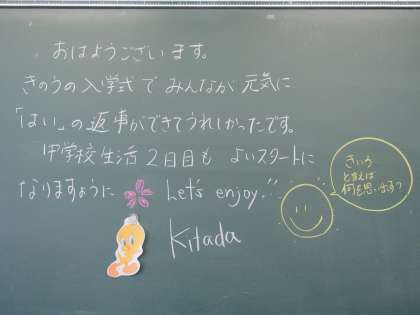 おはようございます。
きのうの入学式でみんなが元気に
「はい」の返事ができてうれしかったです。
中学校生活2日目も よいスタートに
なりますように Let's enjoy!!
Kitada
きいろ
といえば
何を思い